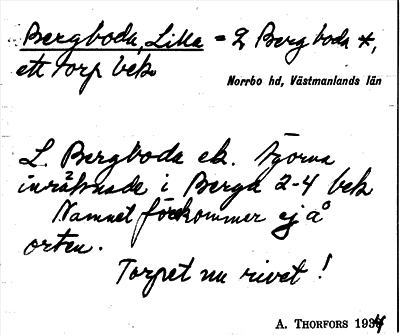 Bergboda, Lilla = L Bergboda *,
ett torp bek.
Norrbo hd, Västmanlands län
L. Bergboda ek. Hjorna
inräknade i Berga 2-4 bek
Namnet förekommer ej å
orten.
Torpet nu rivet!
A. THORFORS 1934